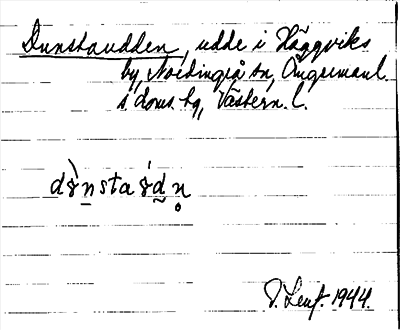 Dunstaudden, udde i Häggviks
by, Nordingrå sn, Ångermanl.
s doms. hg, Västern. l.
dɤ̀nstaɤ́dn̥
1944.